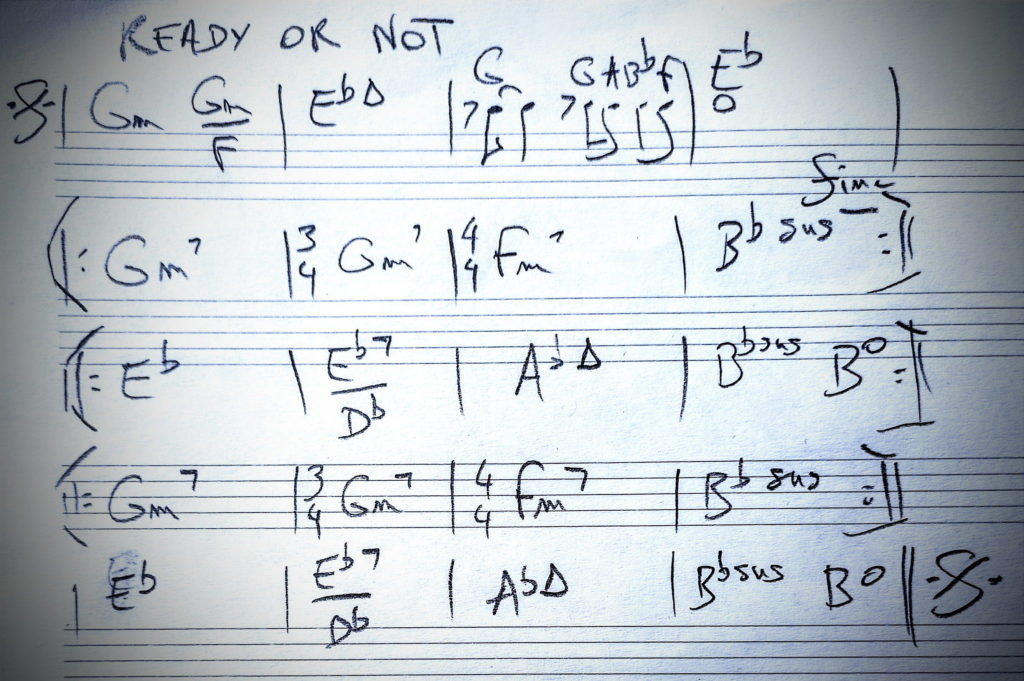 READY OR NOT
𝄋 | Gm Gm/F | E♭Δ | G G A B♭ F | E♭ |
o
fine
||: Gm7 | 3/4 Gm7 | 4/4 Fm7 | B♭sus :||
||: E♭ | E♭7/D♭ | A♭Δ | B♭sus B° :||
||: Gm7 | 3/4 Gm7 | 4/4 Fm7 | B♭sus :||
| E♭ | E♭7/D♭ | A♭Δ | B♭sus B° || 𝄋